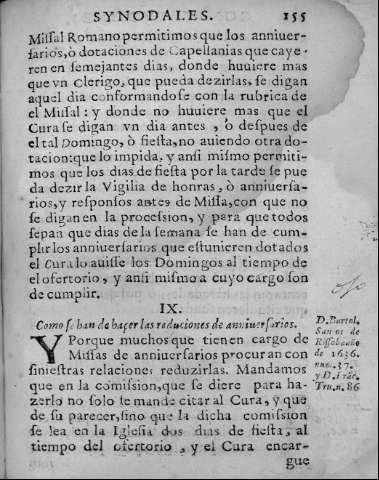 SYNODALES. 155
Missal Romano permitimos que los anniuer-
sarios, ò dotaciones de Capellanias que caye-
ren en semejantes dias, donde huuiere mas
que vn Clerigo, que pueda dezirlas, se digan
aquel dia conformandose con la rubrica de
el Missal: y donde no huuiere mas que el
Cura se digan vn dia antes, ò despues de
el tal Domingo, ò fiesta, no auiendo otra do-
tacion: que lo impida, y ansi mismo permiti-
mos que los dias de fiesta por la tarde se pue
da dezir la Vigilia de honras, ò anniuersa-
rios, y responsos antes de Missa, con que no
se digan en la procession, y para que todos
sepan que dias de la semana se han de cum-
plir los anniuersarios que estuuieren dotados
el Cura lo auisse los Domingos al tiempo de
el ofertorio, y ansi mismo a cuyo cargo son
de cumplir.
IX.
Como se han de hacer las reduciones de anniuersarios.
Y Porque muchos que tienen cargo de
Missas de anniuersarios procuran con
siniestras relaciones reduzirlas. Mandamos
que en la comission, que se diere para ha-
zerlo no solo se mande citar al Cura, y que
de su parecer, sino que la dicha comission
se lea en la Iglesia dos dias de fiesta, al
tiempo del ofertorio, y el Cura encar-
gue
D. Bartol.
Santos de
Rissoba año
de 1636.
num. 37.
y D. Frāc.
Tru. n. 86